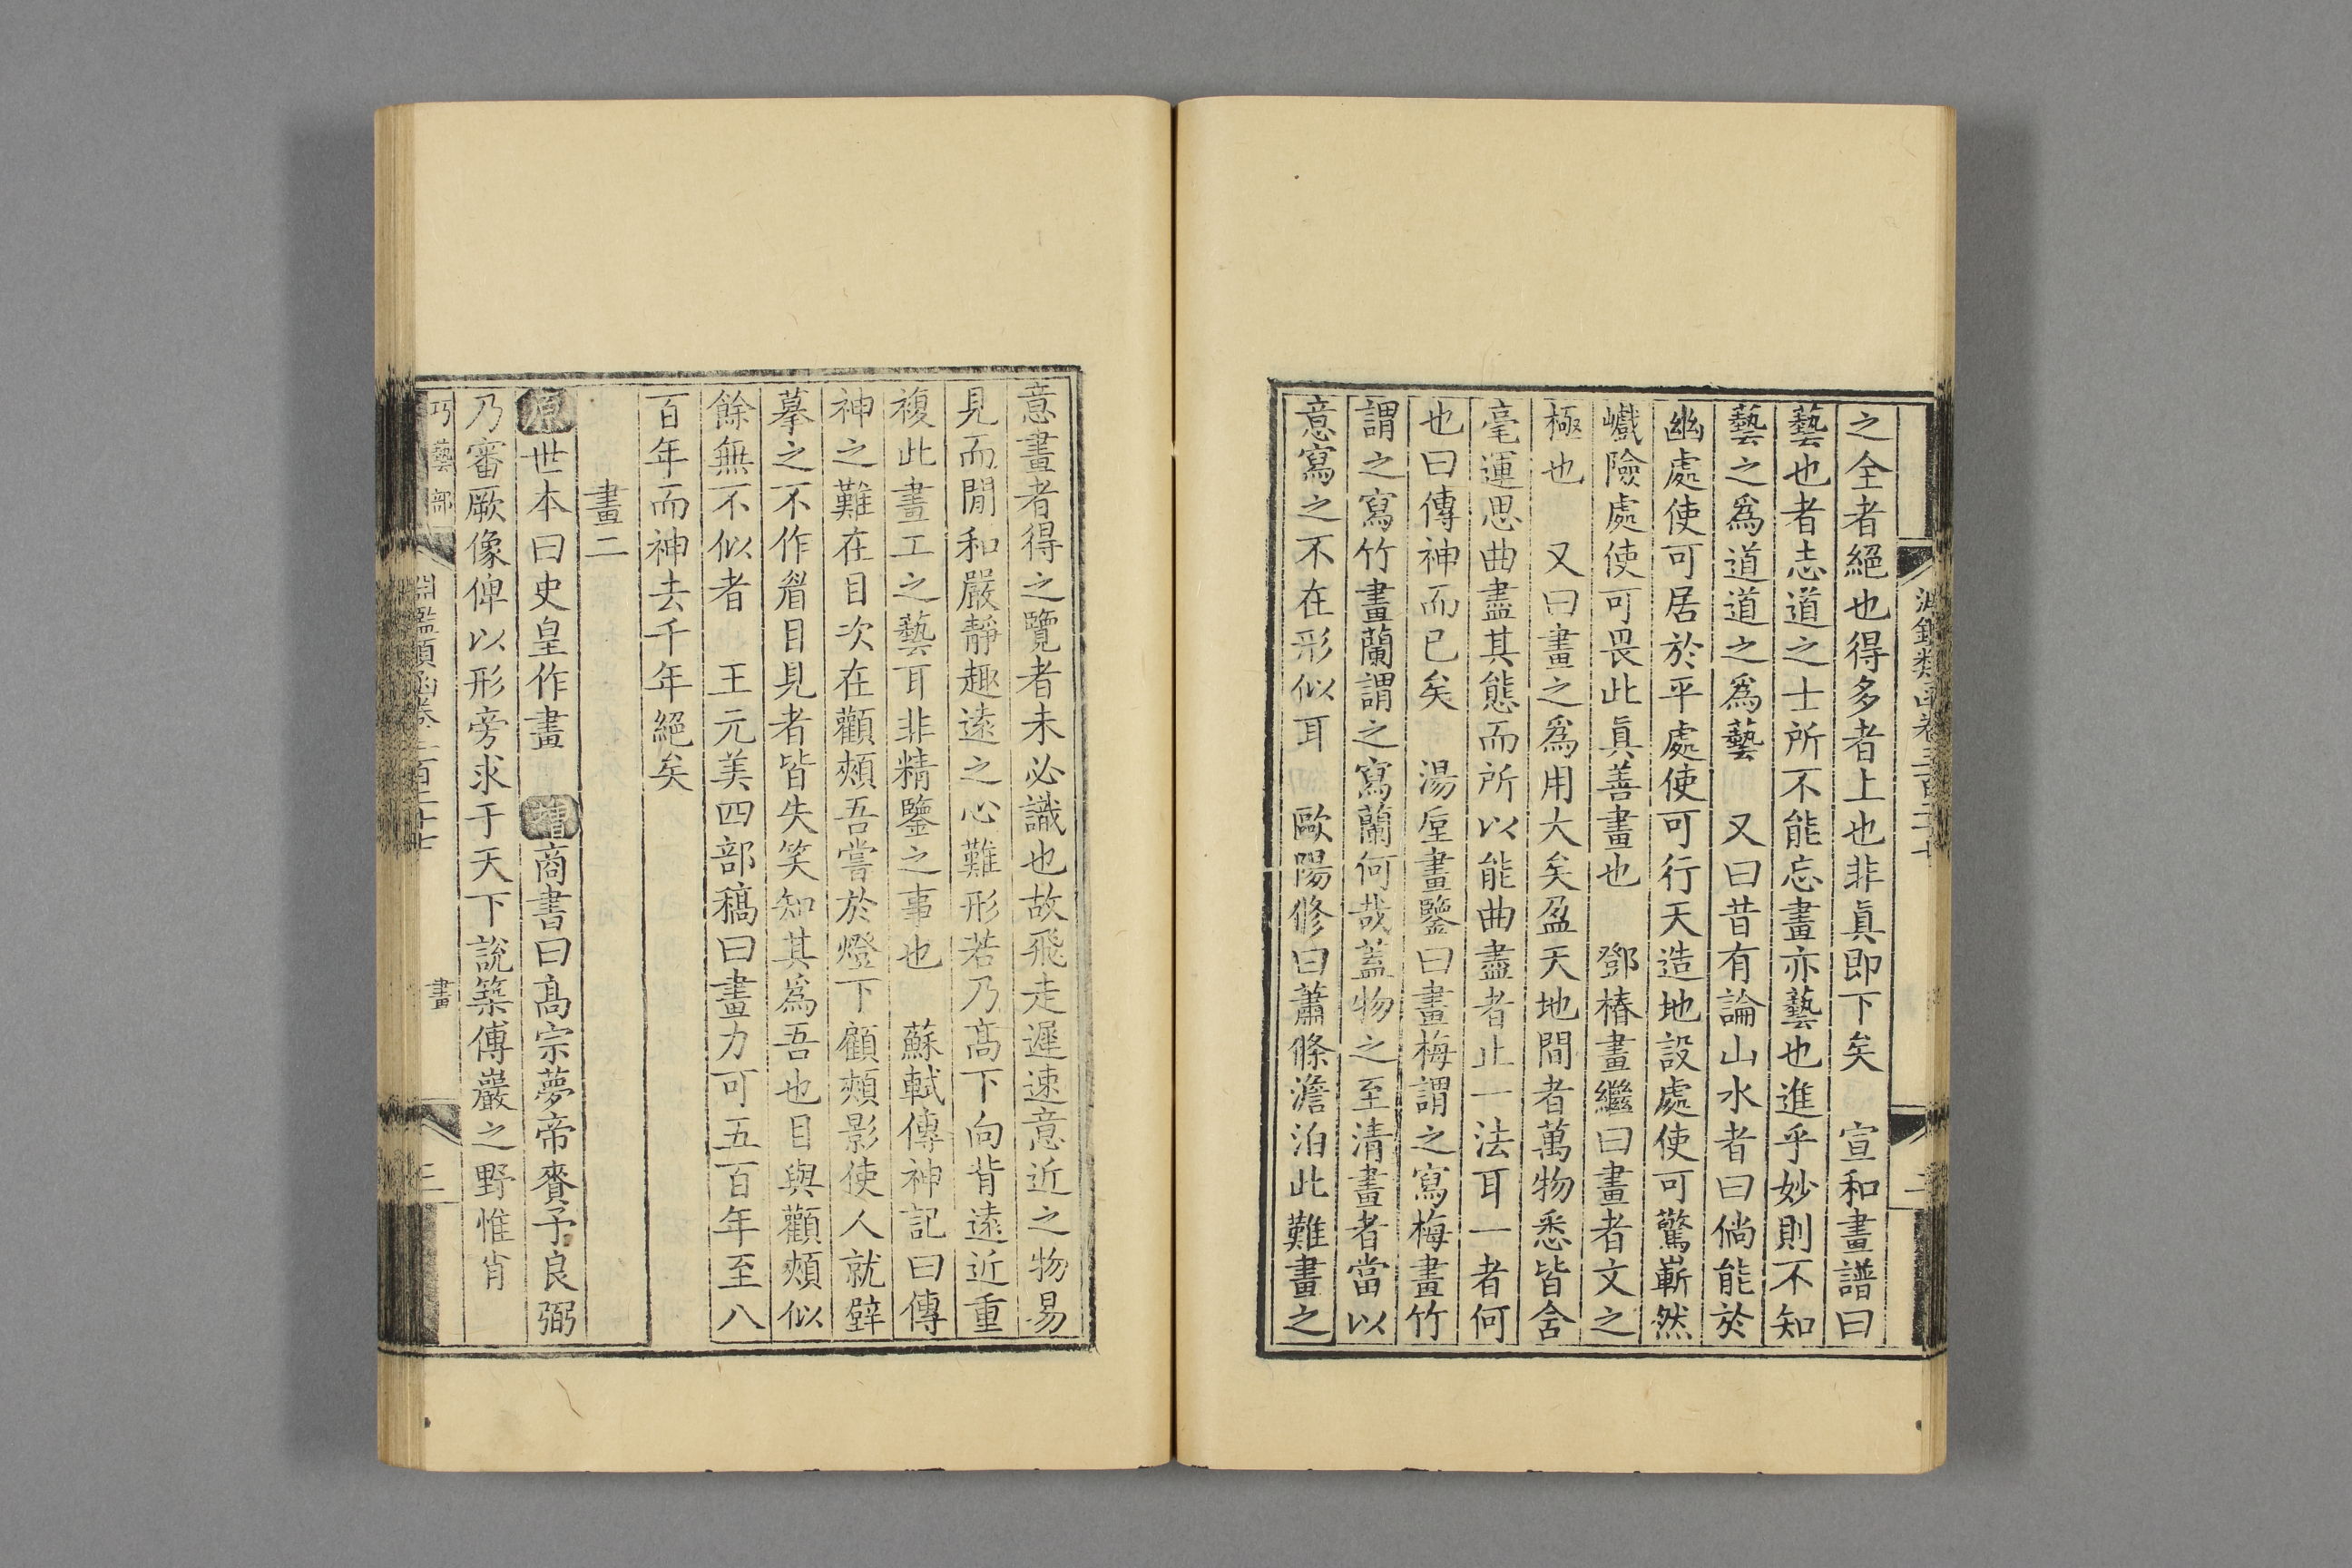 之全者絕也得多者上也非眞即下矣　宣和畫譜曰
藝也者志道之士所不能忘畫亦藝也進乎妙則不知
藝之爲道道之爲藝　又曰昔有論山水者曰倘能於
幽處使可居於平處使可行天造地設處使可驚嶄然
巇險處使可畏此眞善畫也　鄧椿畫繼曰畫者文之
極也　又曰畫之爲用大矣盈天地間者萬物悉皆含
毫運思曲盡其態而所以能曲盡者止一法耳一者何
也曰傳神而已矣　湯垕畫鑒曰畫梅謂之寫梅畫竹
謂之寫竹畫蘭謂之寫蘭何哉蓋物之至清畫者當以
意寫之不在形似耳　歐陽修曰蕭條澹泊此難畫之
意畫者得之覽者未必識也故飛走遲速意近之物易
見而閒和嚴靜趣遠之心難形若乃高下向背遠近重
複此畫工之藝耳非精鑒之事也　蘇軾傳神記曰傳
神之難在目次在顴頰吾嘗於燈下顧頰影使人就壁
摹之不作眉目見者皆失笑知其爲吾也目與顴頰似
餘無不似者　王元美四部稿曰畫力可五百年至八
百年而神去千年絕矣
畫二
原世本曰史皇作畫　增商書曰高宗夢帝賚予良弼
乃審厥像俾以形旁求于天下說築傅巖之野惟肖
巧藝部　淵鑑類函卷三百二十七　畫　三